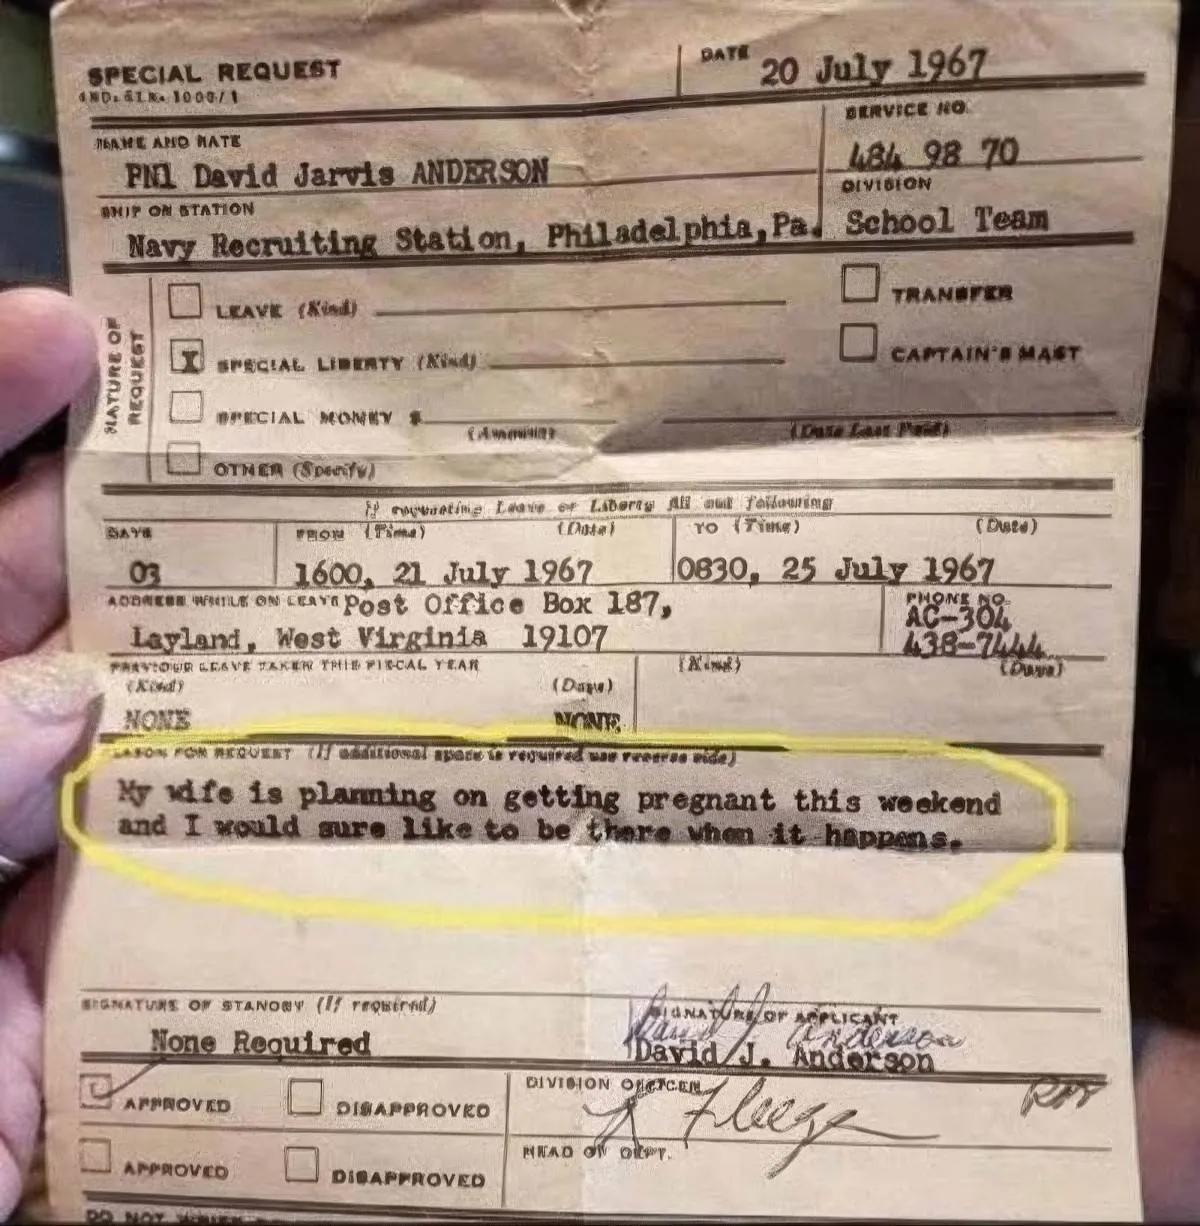 SPECIAL REQUEST
DATE 20 July 1967
NAME AND RATE
SERVICE NO.
PN1 David Jarvis ANDERSON
484 98 70
SHIP OR STATION
DIVISION
Navy Recruiting Station, Philadelphia, Pa.
School Team
NATURE OF REQUEST
LEAVE (Kind)
TRANSFER
X SPECIAL LIBERTY (Kind)
CAPTAIN'S MAST
SPECIAL MONEY $
(Amount)
(Date Last Paid)
OTHER (Specify)
If requesting Leave or Liberty fill out following
DAYS
FROM (Time)
(Date)
TO (Time)
(Date)
03
1600, 21 July 1967
0830, 25 July 1967
ADDRESS WHILE ON LEAVE Post Office Box 187,
PHONE NO.
AC-304
Layland, West Virginia 19107
438-7444
PREVIOUS LEAVE TAKEN THIS FISCAL YEAR
(Kind)
(Days)
(Kind)
(Days)
NONE
NONE
REASON FOR REQUEST (If additional space is required use reverse side)
My wife is planning on getting pregnant this weekend
and I would sure like to be there when it happens.
SIGNATURE OF STANDBY (If required)
SIGNATURE OF APPLICANT
None Required
David J. Anderson
David J. Anderson
APPROVED
DISAPPROVED
DIVISION OFFICER
APPROVED
DISAPPROVED
HEAD OF DEPT.